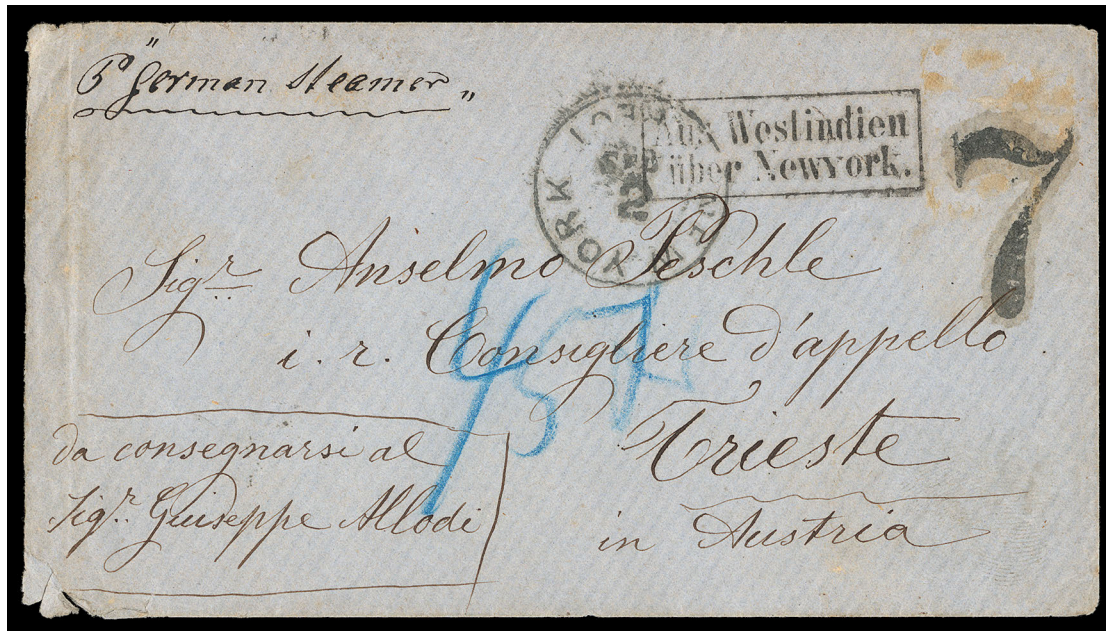 P "German steamer"
Aus Westindien
über Newyork.
NEW YORK
SEP
2
7
Sigr. Anselmo Peschle
i. r. Consigliere d'appello
Trieste
in Austria
da consegnarsi al
Sigr. Giuseppe Allodi